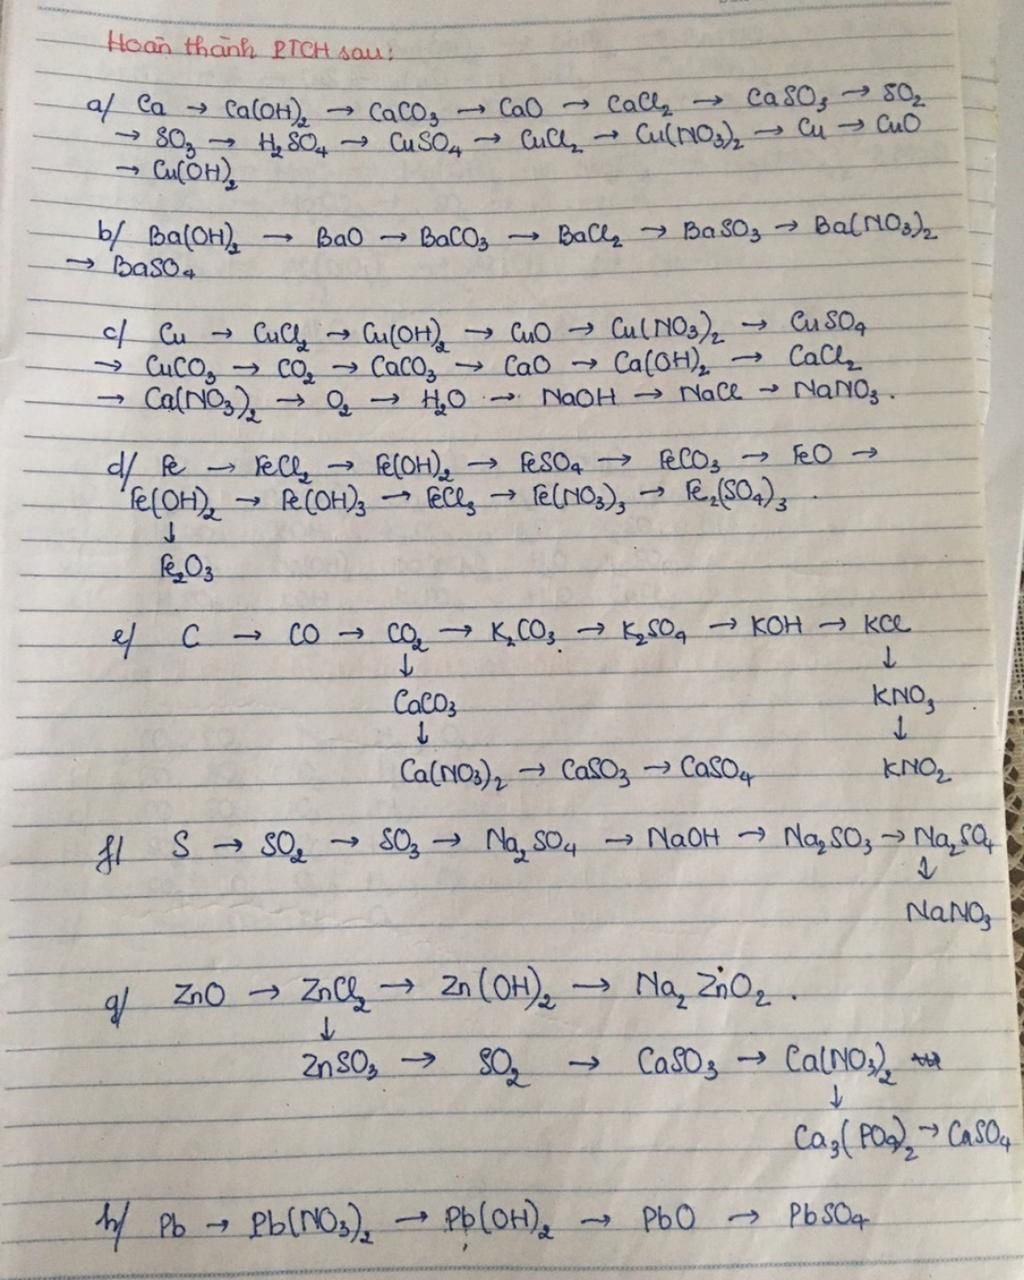 Hoàn thành PTCH sau:
a/ Ca → Ca(OH)₂ → CaCO₃ → CaO → CaCl₂ → CaSO₃ → SO₂
→ SO₃ → H₂SO₄ → CuSO₄ → CuCl₂ → Cu(NO₃)₂ → Cu → CuO
→ Cu(OH)₂
b/ Ba(OH)₂ → BaO → BaCO₃ → BaCl₂ → BaSO₃ → Ba(NO₃)₂
→ BaSO₄
c/ Cu → CuCl₂ → Cu(OH)₂ → CuO → Cu(NO₃)₂ → CuSO₄
→ CuCO₃ → CO₂ → CaCO₃ → CaO → Ca(OH)₂ → CaCl₂
→ Ca(NO₃)₂ → O₂ → H₂O → NaOH → NaCl → NaNO₃.
d/ Fe → FeCl₂ → Fe(OH)₂ → FeSO₄ → FeCO₃ → FeO →
Fe(OH)₂ → Fe(OH)₃ → FeCl₃ → Fe(NO₃)₃ → Fe₂(SO₄)₃.
↓
Fe₂O₃
e/ C → CO → CO₂ → K₂CO₃ → K₂SO₄ → KOH → KCl
↓ ↓
CaCO₃ KNO₃
↓ ↓
Ca(NO₃)₂ → CaSO₃ → CaSO₄ KNO₂
f/ S → SO₂ → SO₃ → Na₂SO₄ → NaOH → Na₂SO₃ → Na₂SO₄
↓
NaNO₃
g/ ZnO → ZnCl₂ → Zn(OH)₂ → Na₂ZnO₂.
↓
ZnSO₃ → SO₂ → CaSO₃ → Ca(NO₃)₂
↓
Ca₃(PO₄)₂ → CaSO₄
h/ Pb → Pb(NO₃)₂ → Pb(OH)₂ → PbO → PbSO₄